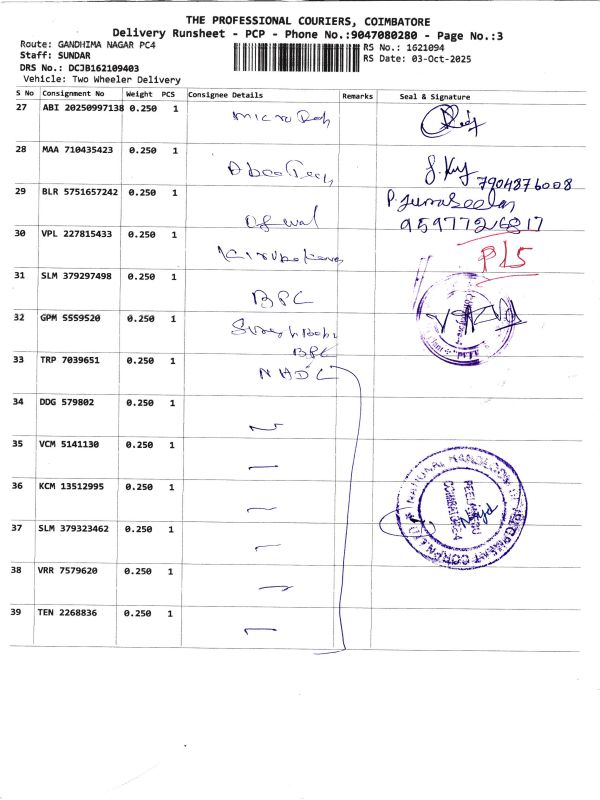 THE PROFESSIONAL COURIERS, COIMBATORE
Delivery Runsheet - PCP - Phone No.:9047080280 - Page No.:3
Route: GANDHIMA NAGAR PC4
RS No.: 1621094
Staff: SUNDAR
RS Date: 03-Oct-2025
DRS No.: DCJB162109403
Vehicle: Two Wheeler Delivery
S No Consignment No Weight PCS Consignee Details Remarks Seal & Signature
27 ABI 20250997138 0.250 1
28 MAA 710435423 0.250 1
7904876008
29 BLR 5751657242 0.250 1
9597726817
30 VPL 227815433 0.250 1
31 SLM 379297498 0.250 1 BPC
32 GPM 5559520 0.250 1
BPC
33 TRP 7039651 0.250 1 NHDC
34 DDG 579802 0.250 1
35 VCM 5141130 0.250 1
36 KCM 13512995 0.250 1
NATIONAL HANDLOOM DEVELOPMENT CORPN LTD
PEELAMEDU
COIMBATORE-4
37 SLM 379323462 0.250 1
38 VRR 7579620 0.250 1
39 TEN 2268836 0.250 1